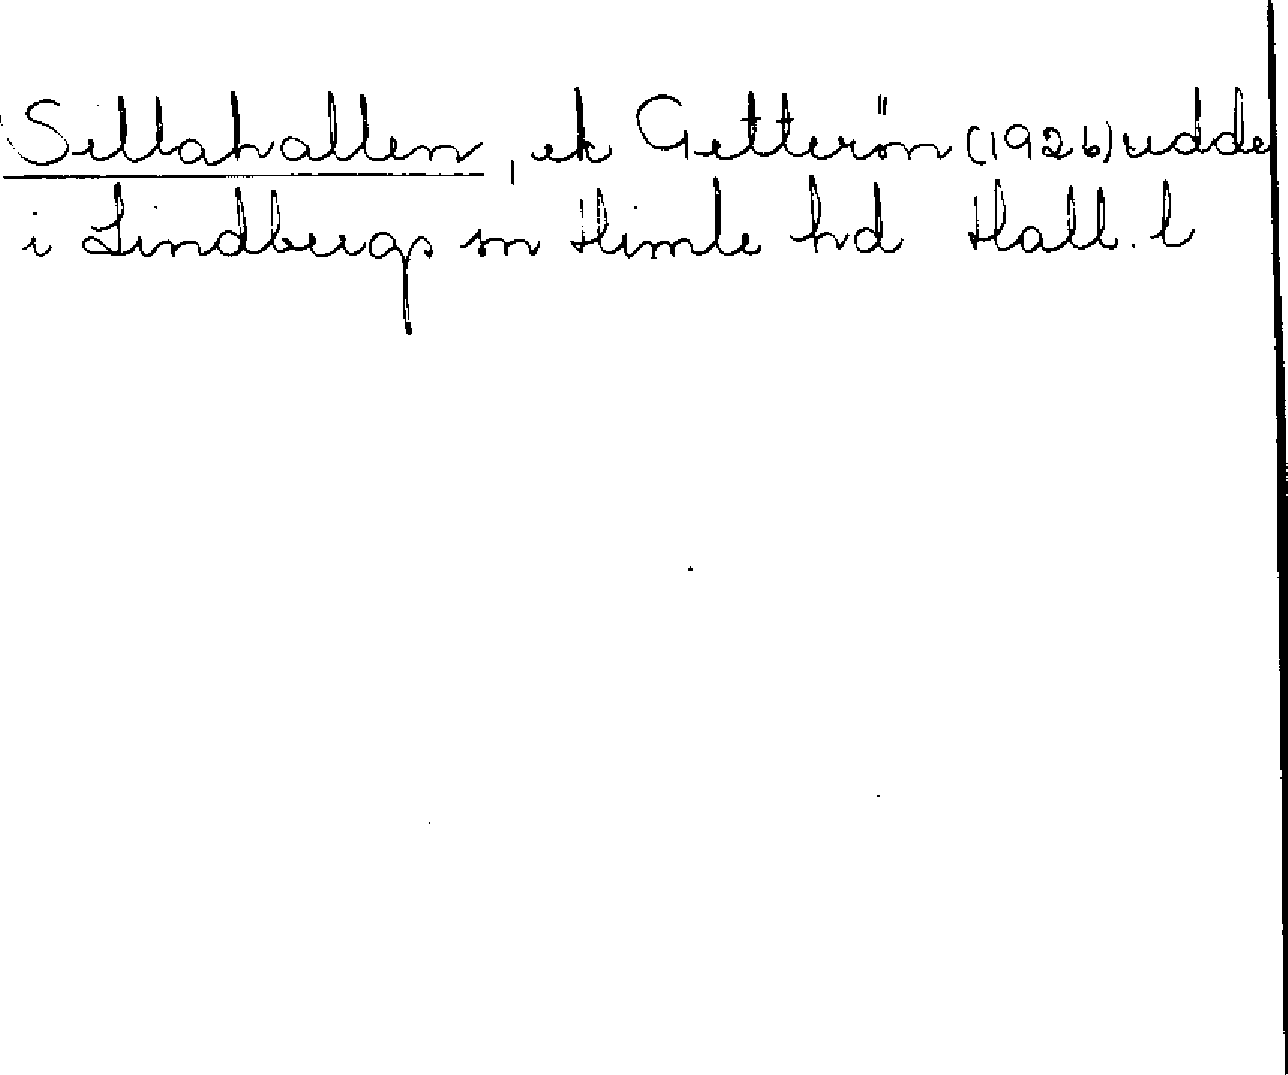 Sillahallen, ek Getterön (1926) udde
i Lindbergs sn Himle hd Hall. l